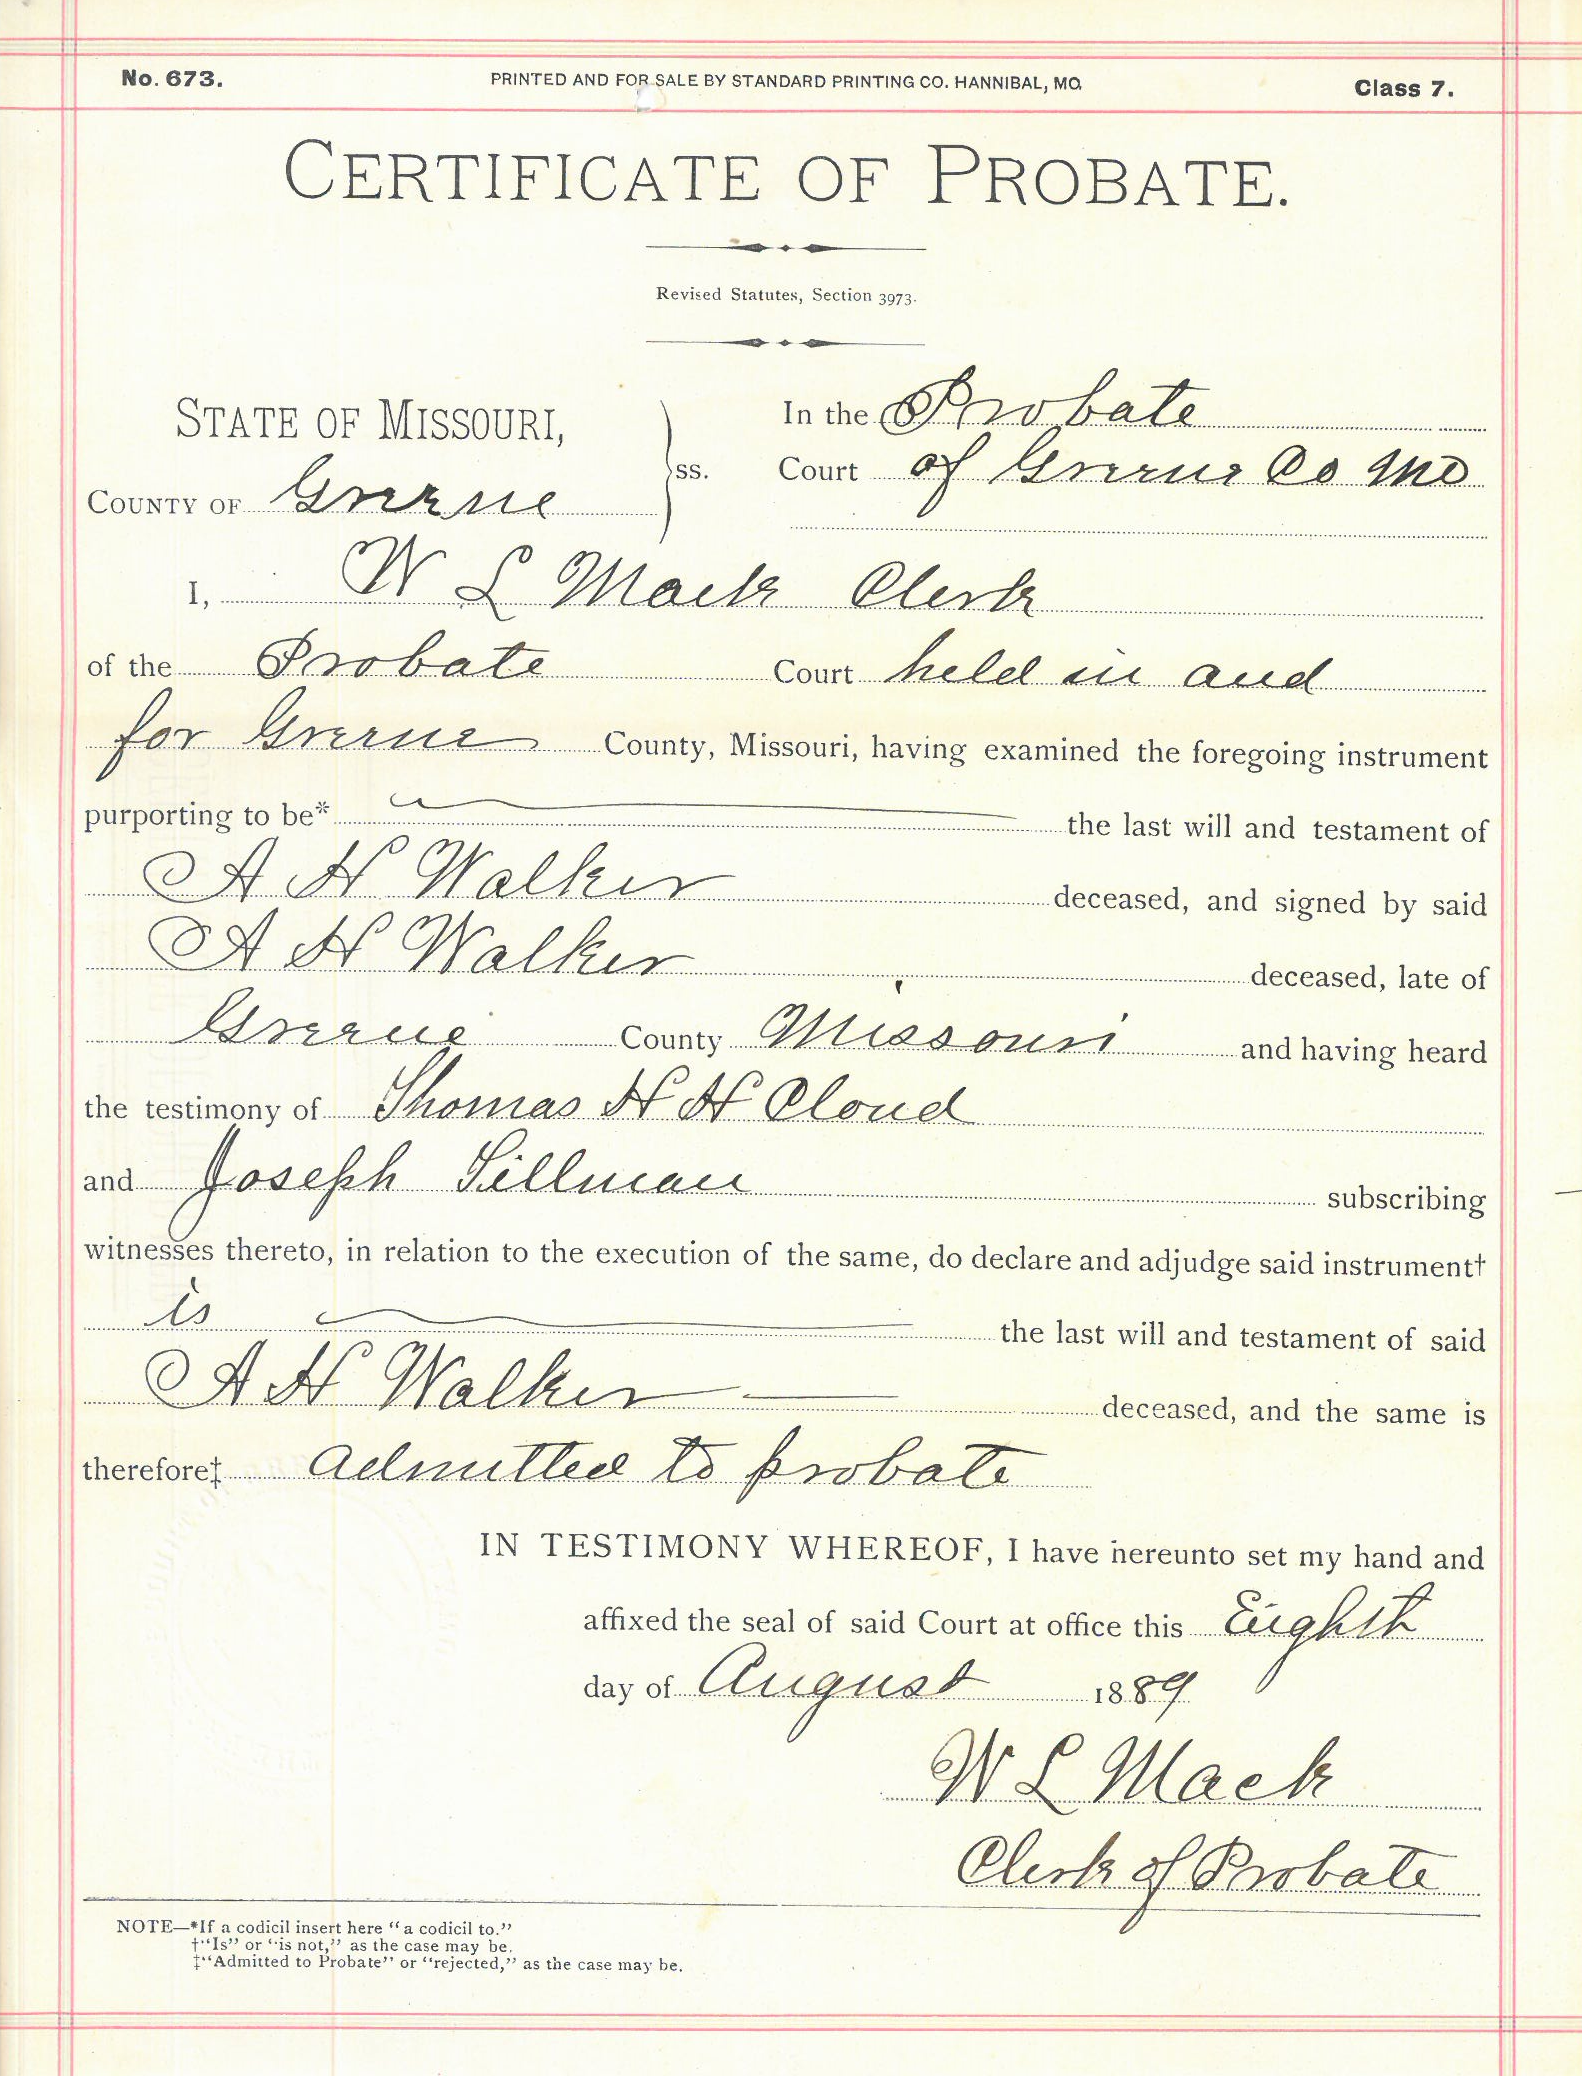 No. 673. PRINTED AND FOR SALE BY STANDARD PRINTING CO. HANNIBAL, MO. Class 7.
CERTIFICATE OF PROBATE.
Revised Statutes, Section 3973.
STATE OF MISSOURI,
COUNTY OF Greene
ss.
In the Probate
Court of Greene Co Mo
I, W L Mack Clerk
of the Probate Court held in and
for Greene County, Missouri, having examined the foregoing instrument
purporting to be* the last will and testament of
A H Walker deceased, and signed by said
A H Walker deceased, late of
Greene County Missouri and having heard
the testimony of Thomas H H Cloud
and Joseph Sillman subscribing
witnesses thereto, in relation to the execution of the same, do declare and adjudge said instrument†
is the last will and testament of said
A H Walker deceased, and the same is
therefore‡ admitted to probate
IN TESTIMONY WHEREOF, I have hereunto set my hand and
affixed the seal of said Court at office this Eighth
day of August 1889
W L Mack
Clerk of Probate
NOTE—*If a codicil insert here "a codicil to."
†"Is" or "is not," as the case may be.
‡"Admitted to Probate" or "rejected," as the case may be.